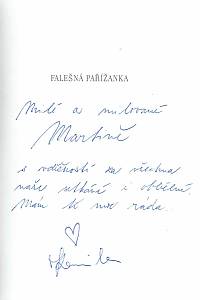 FALEŠNÁ PAŘÍŽANKA
Milé a milované
Martině
s vděčností za všechna
naše setkání i oblečení.
Mám tě moc ráda.